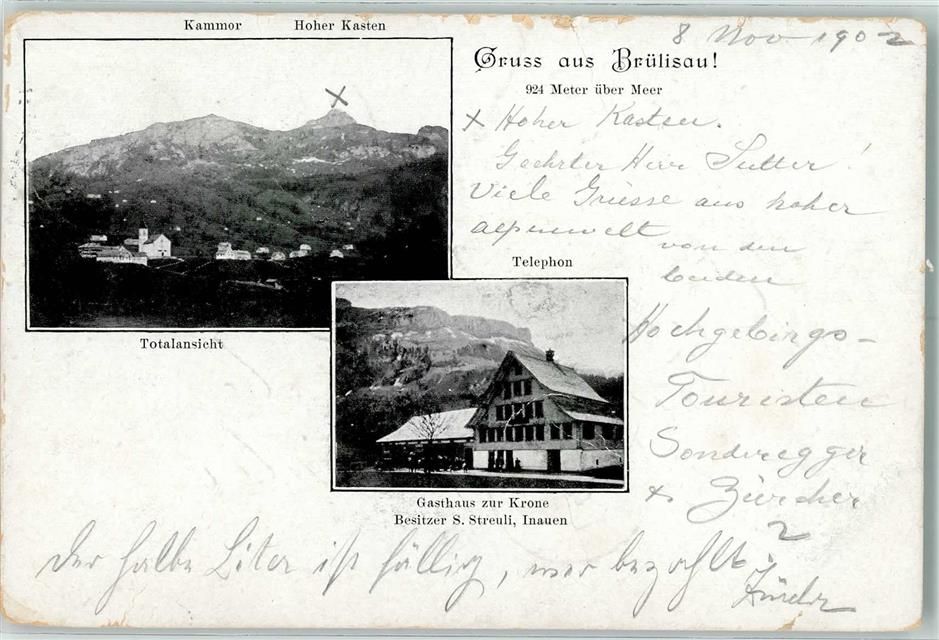 Kammor Hoher Kasten
8 Nov 1902
Gruss aus Brülisau!
924 Meter über Meer
x Hoher Kasten.
Geehrter Herr Sutter!
Viele Grüsse aus hoher
alpenwelt von den
beiden
Hochgebirgs-
Touristen
Sonderegger
& Zürcher
Telephon
Totalansicht
Gasthaus zur Krone
Besitzer S. Streuli, Inauen
Der halbe Liter ist fällig, wer bezahlt?
Zürcher